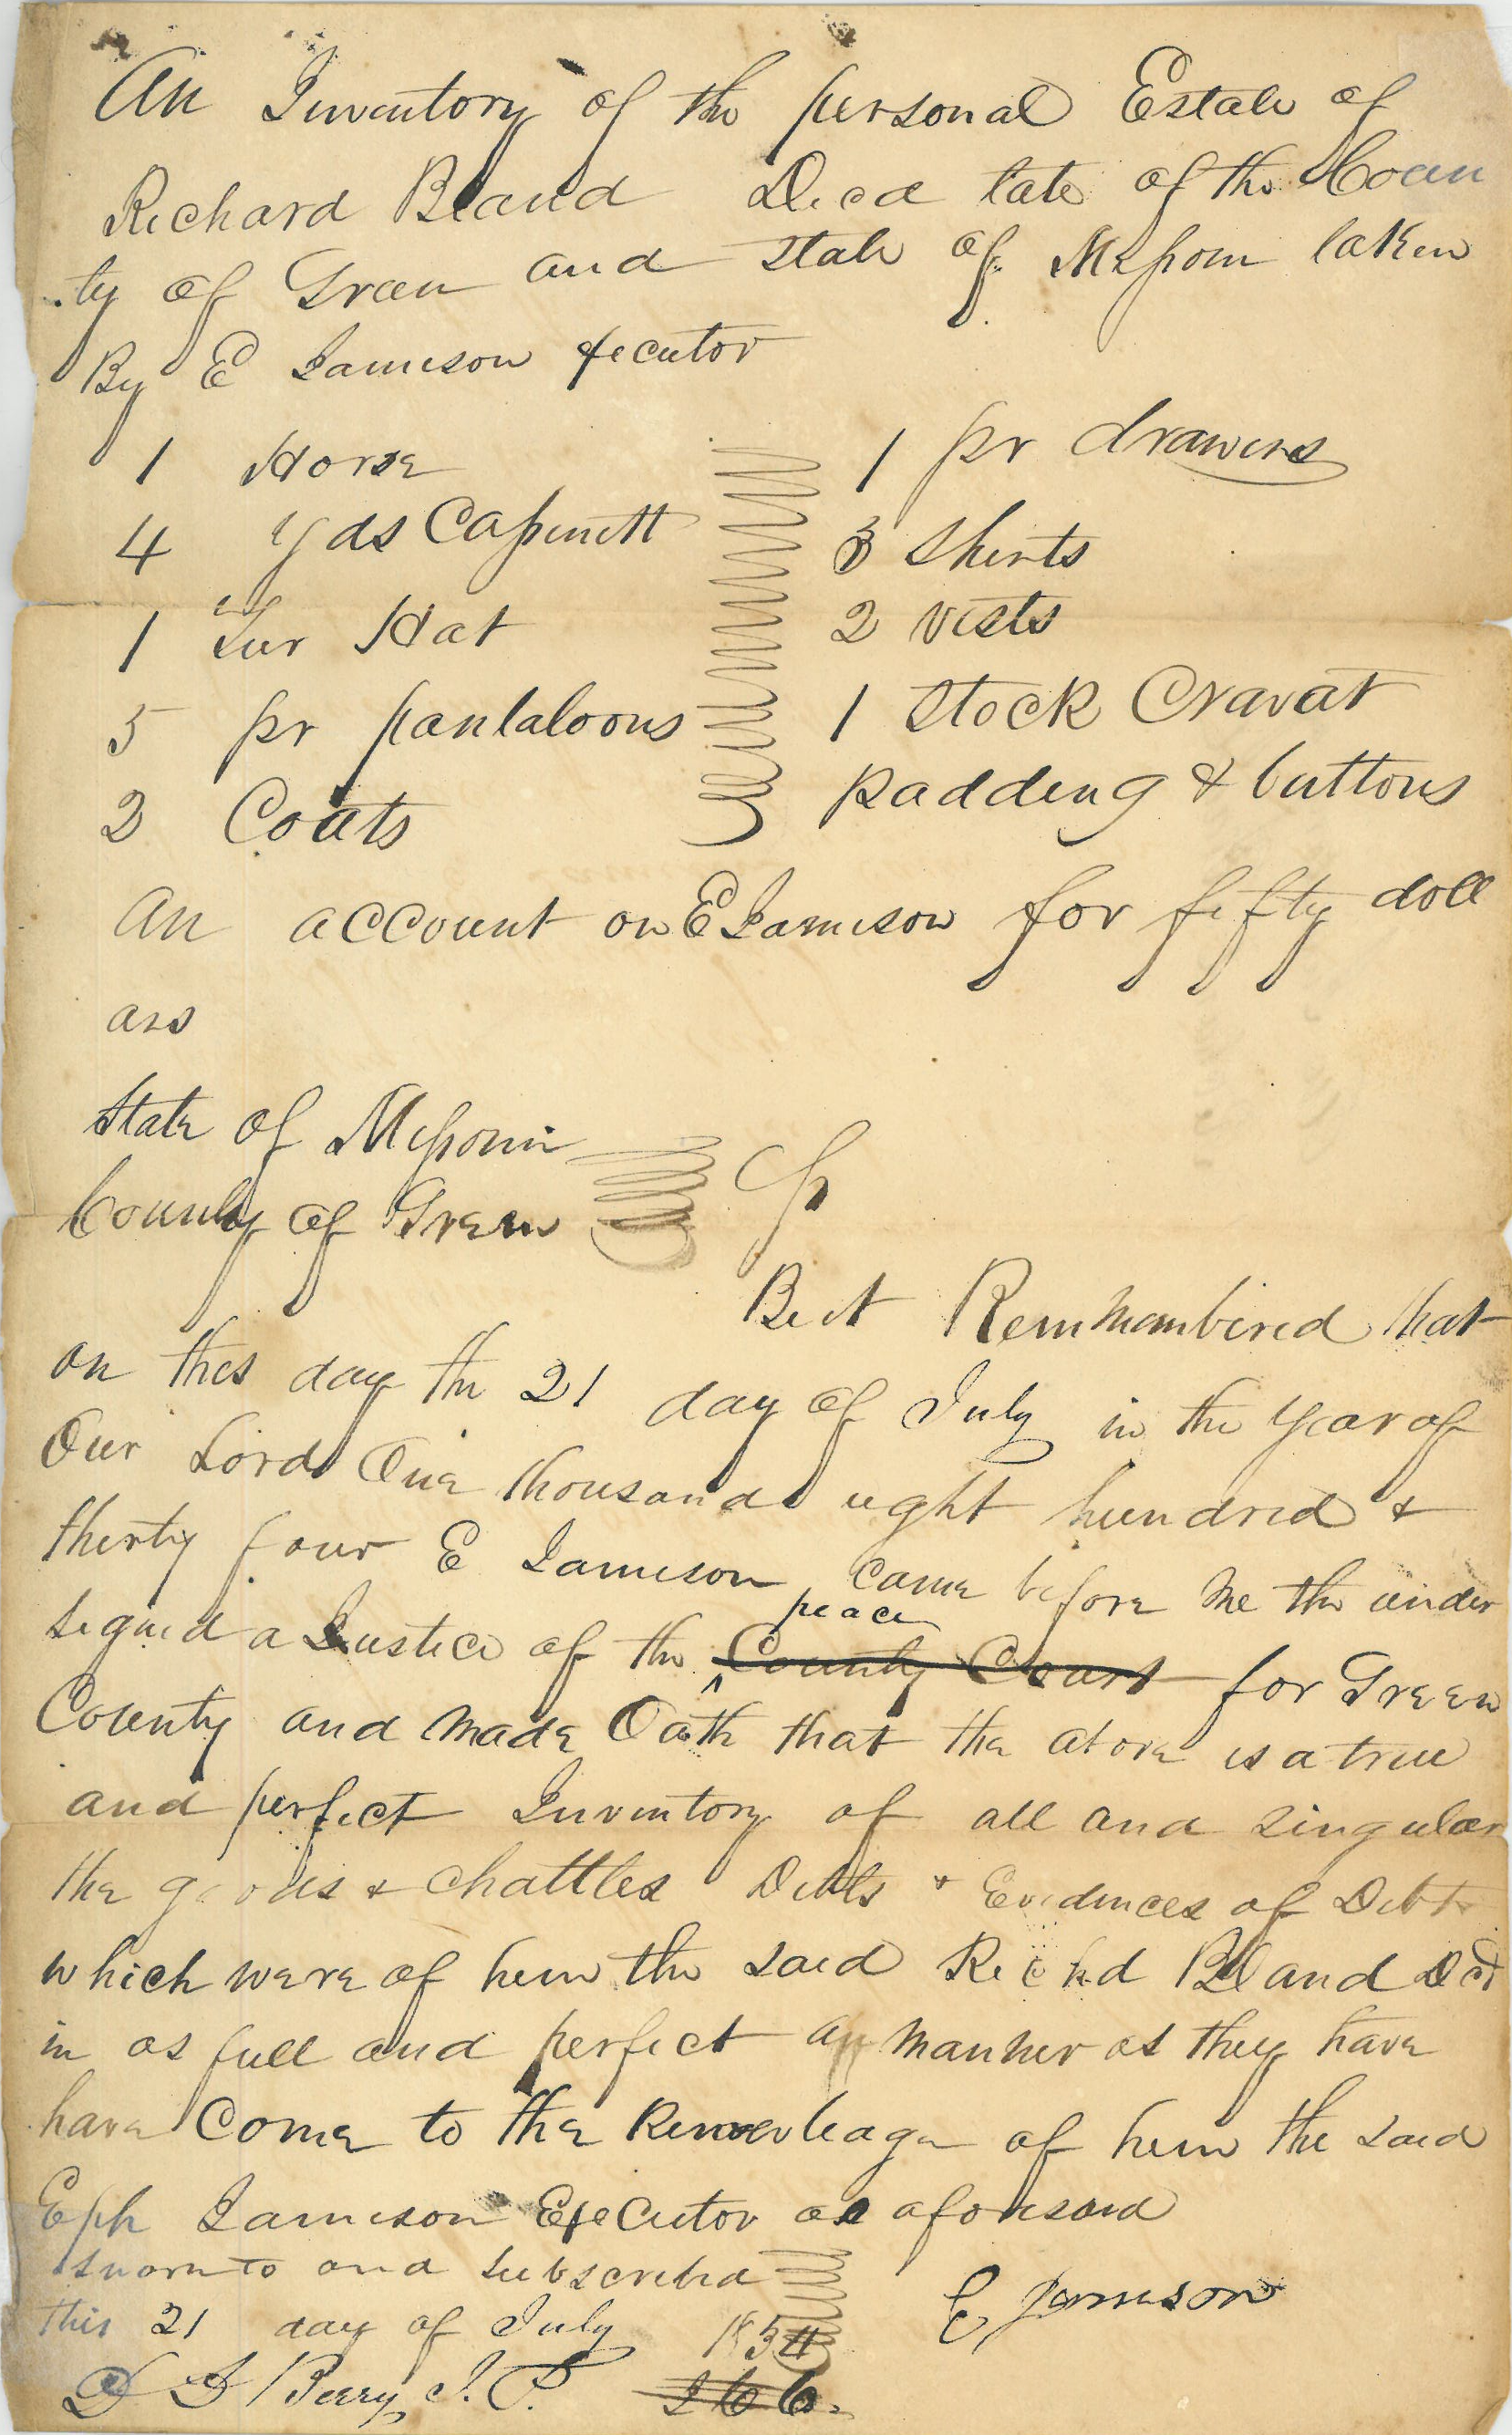 An Inventory of the personal Estate of
Richard Bland Decd late of the Coun
ty of Green and State of Missouri taken
By E Jamison Executor
1 Horse
4 yds Cassinett
1 Fur Hat
5 pr pantaloons
2 Coats
1 pr drawers
3 Shirts
2 vests
1 Stock Cravat
padding & buttons
An account on E Jamison for fifty doll
ars
State of Missouri
County of Green
Be it Remmembered that
on this day the 21 day of July in the year of
Our Lord One thousand eight hundred &
thirty four E Jamison came before me the under
signed a Justice of the peace County Court for Green
County and made Oath that the above is a true
and perfect Inventory of all and singular
the goods & chattles Debts & Evidences of Debt
which were of him the said Richd Bland Dcd
in as full and perfect a manner as they have
have Come to the of him the said
Eph Jamison Executor as aforesaid
Sworn to and subscribed
this 21 day of July 1834
E Jamison
D D Berry J. P.